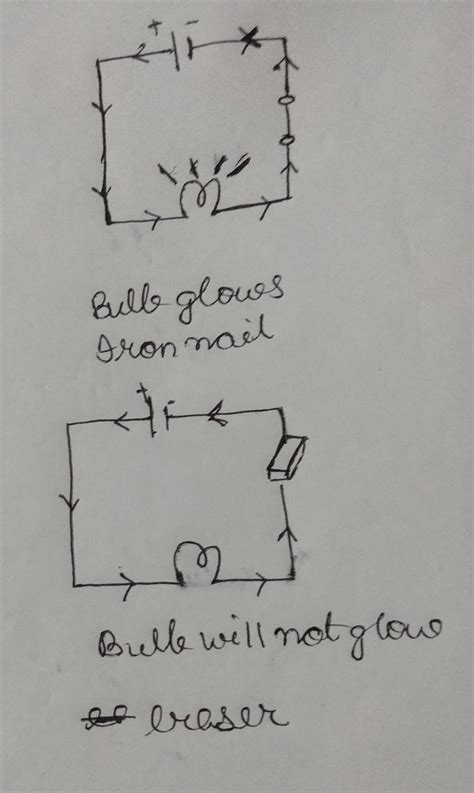 + -
Bulb glows
Iron nail
+ -
Bulb will not glow
eraser